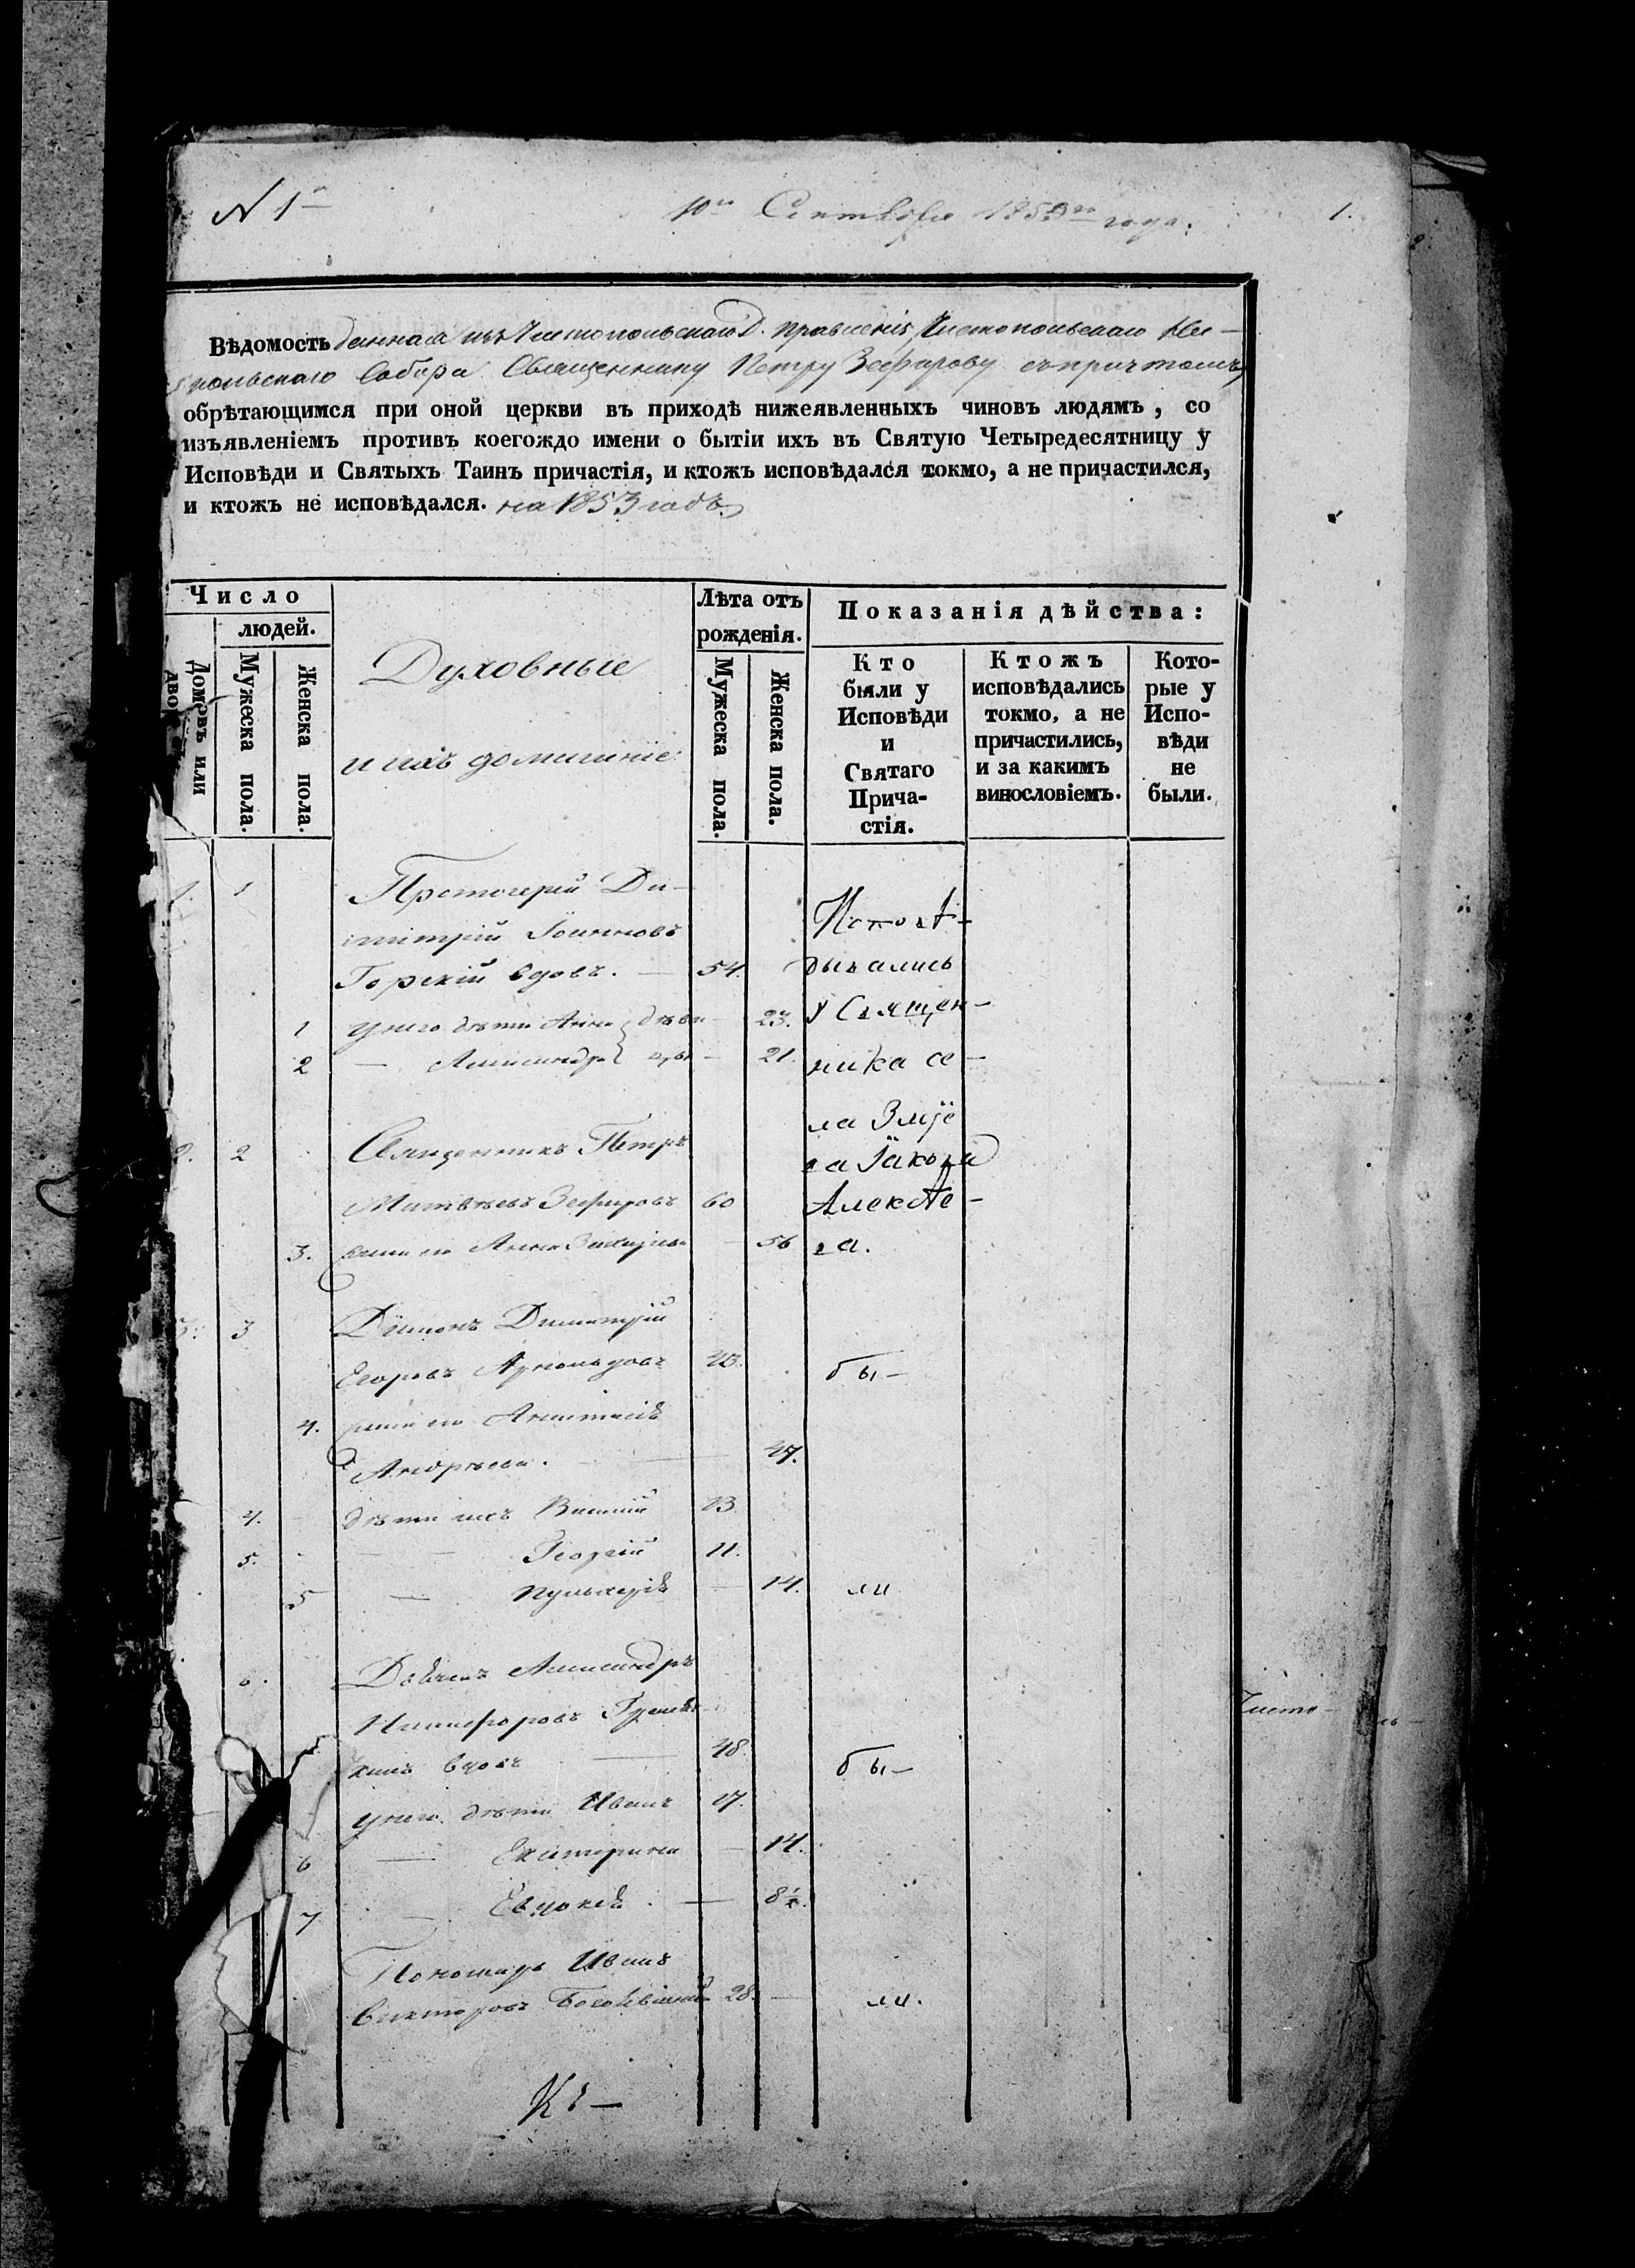 N 1й
10го Сентября 1853го года.
1.
Вѣдомость данная изъ Чистопольскаго Д. Правленія, Чистопольскаго Ни-
кольскаго Собора Священнику Петру Зефирову съ причтомъ,
обрѣтающимся при оной церкви въ приходѣ нижеявленныхъ чиновъ людямъ, со
изъявленіемъ противъ коегождо имени о бытіи ихъ въ Святую Четыредесятницу у
Исповѣди и Святыхъ Таинъ причастія, и ктожъ исповѣдался токмо, а не причастился,
и ктожъ не исповѣдался. на 1853 годъ.
Число
людей.
Домовъ или
двор
Мужеска пола.
Женска пола.
Духовные
и ихъ домашніе:
Лѣта отъ
рожденія.
Мужеска пола.
Женска пола.
Показанія дѣйства:
Кто
были у
Исповѣди
и
Святаго
Прича-
стія.
Ктожъ
исповѣдались
токмо, а не
причастились,
и за какимъ
винословіемъ.
Кото-
рые у
Испо-
вѣди
не
были.
1. 1 Протоіерей Ди-
митрій Іоанновъ
Горскій вдовъ. — 54.
1 у него дѣти Анна дѣви 23.
2 — Александра цы — 21.
Исповѣ-
дывались
у Священ-
ника се-
ла Зміе
ва Іакова
Алексѣе-
ва.
2. 2 Священникъ Петръ
Матвѣевъ Зефировъ 60
3. жена его Анна Захарова 56
3. 3 Діаконъ Димитрій
Егоровъ 43. бы-
4. жена его Анастасія
Андреева. — 47.
4. дѣти ихъ Василій 13.
5. — Георгій 11.
5 — Пульхерія — 14. ли
6. Дьячекъ Александръ
Никифоровъ
кинъ вдовъ — 48. бы-
у него дѣти Иванъ 17.
6 — Екатерина — 14.
7 — Евдокія — 8½.
Пономарь Иванъ
Викторовъ 28. — ли.
Чисто-